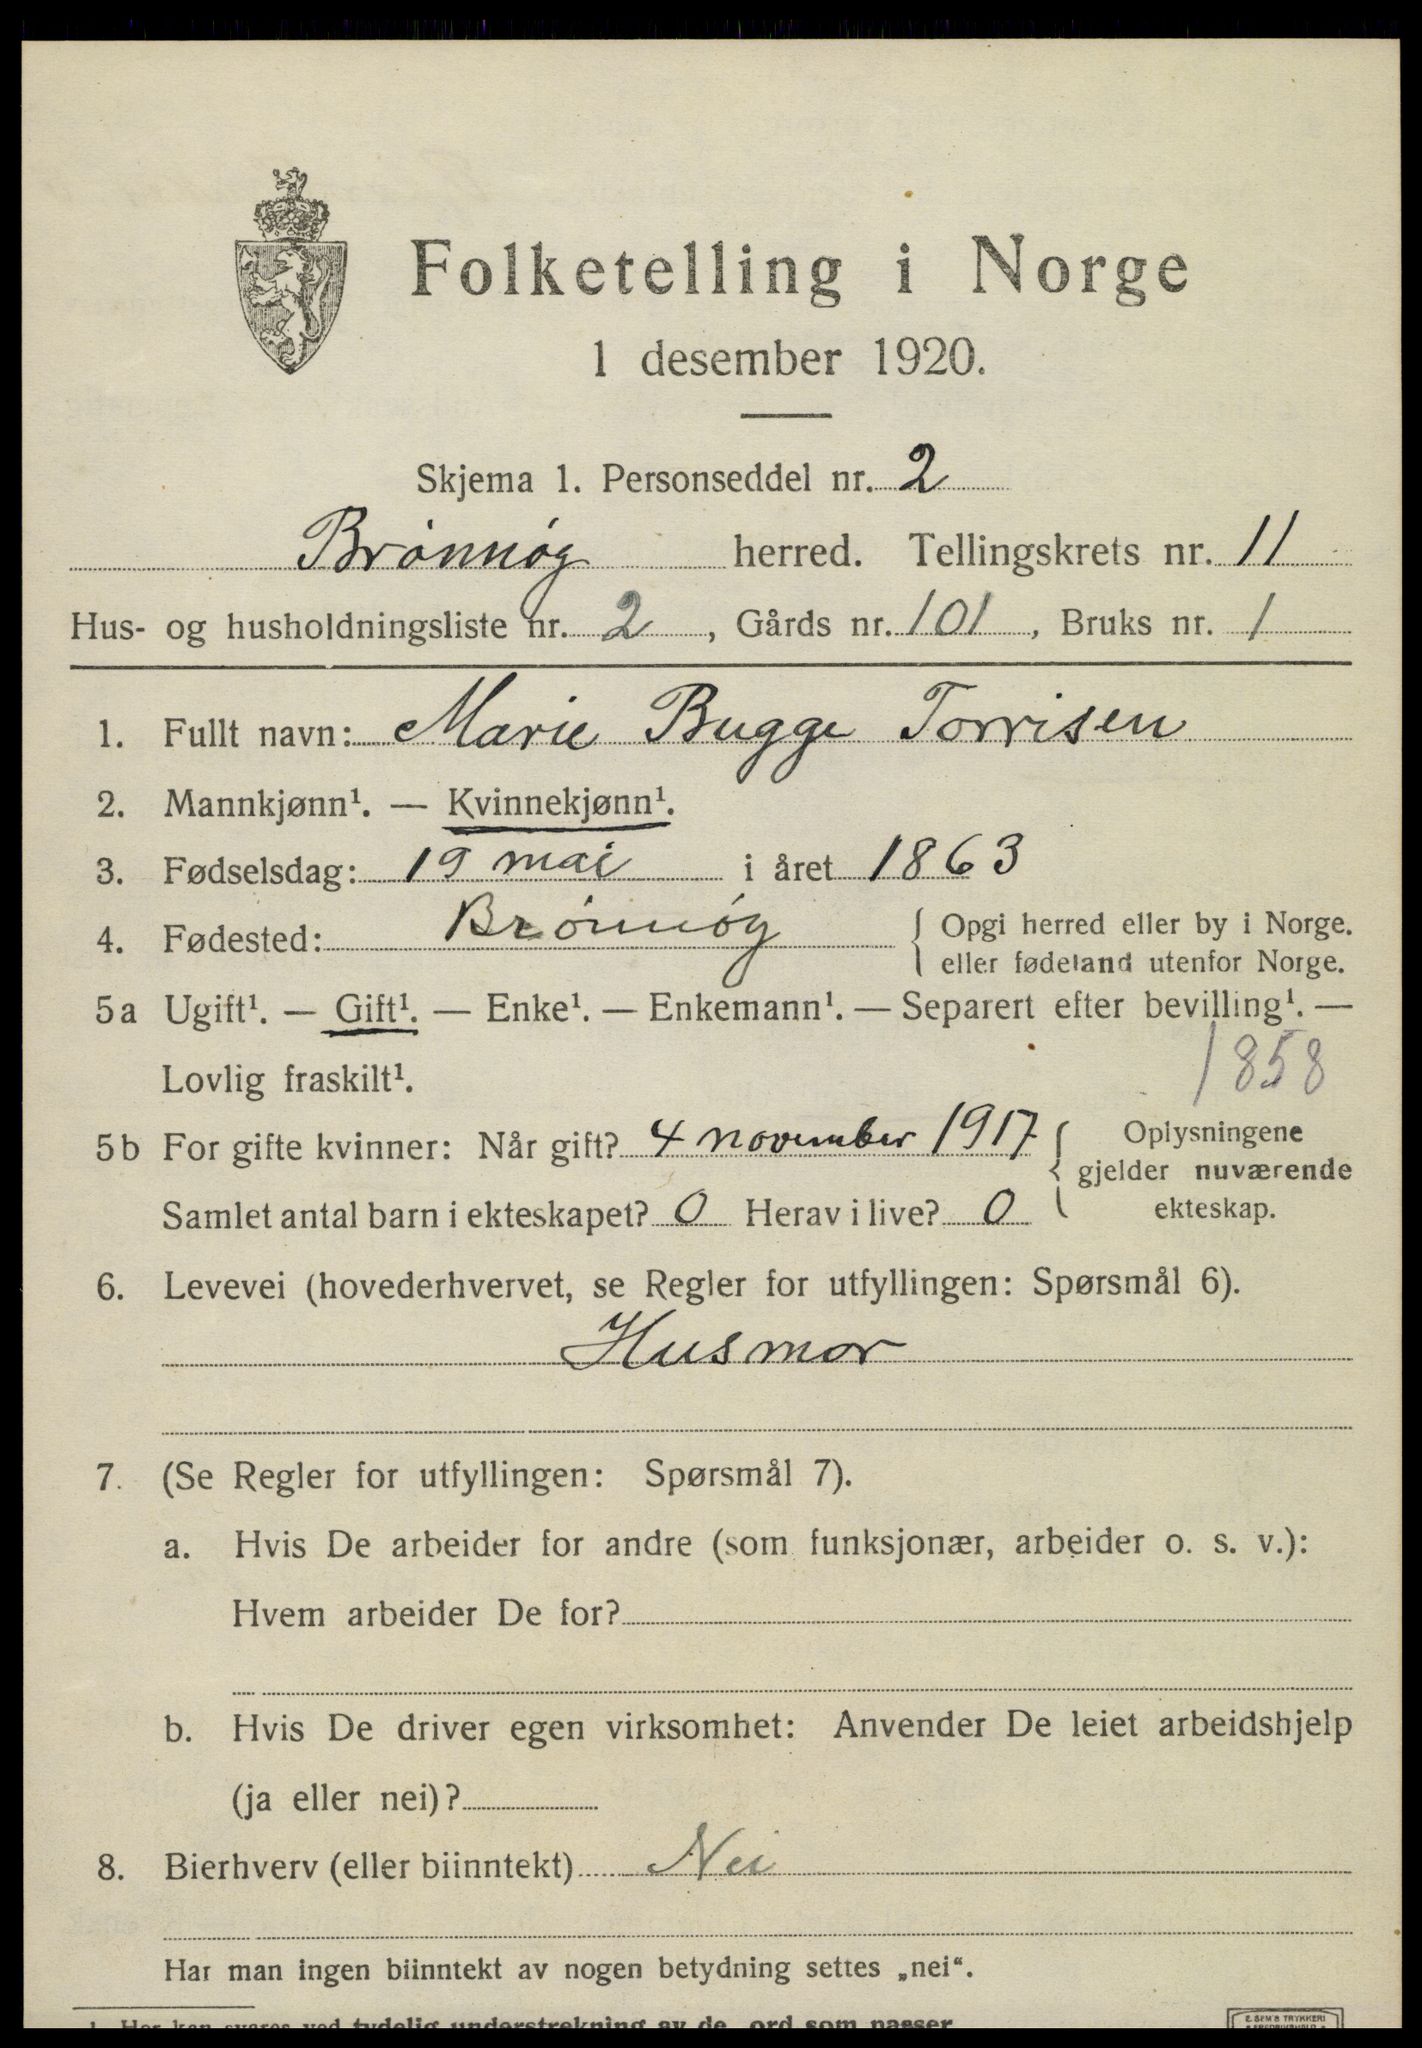 Folketelling i Norge
1 desember 1920.
Skjema 1. Personseddel nr. 2
Brønnøy herred. Tellingskrets nr. 11
Hus- og husholdningsliste nr. 2, Gårds nr. 101, Bruks nr. 1
1. Fullt navn: Marie Bugge Torrisen
2. Mannkjønn¹. — Kvinnekjønn¹.
3. Fødselsdag: 19 mai i året 1863
4. Fødested: Brønnøy { Opgi herred eller by i Norge.
eller fødeland utenfor Norge.
5a Ugift¹. — Gift¹. — Enke¹. — Enkemann¹. — Separert efter bevilling¹. —
Lovlig fraskilt¹. 1858
5b For gifte kvinner: Når gift? 4 november 1917 { Oplysningene
gjelder nuværende
Samlet antal barn i ekteskapet? 0 Herav i live? 0 ekteskap.
6. Levevei (hovederhvervet, se Regler for utfyllingen: Spørsmål 6).
Husmor
7. (Se Regler for utfyllingen: Spørsmål 7).
a. Hvis De arbeider for andre (som funksjonær, arbeider o. s. v.):
Hvem arbeider De for?
b. Hvis De driver egen virksomhet: Anvender De leiet arbeidshjelp
(ja eller nei)?
8. Bierhverv (eller biinntekt) Nei
Har man ingen biinntekt av nogen betydning settes „nei“.
1. Her kan svares ved tydelig understrekning av de ord som passer
E. SEM'S TRYKKERI
FREDRIKSHALD